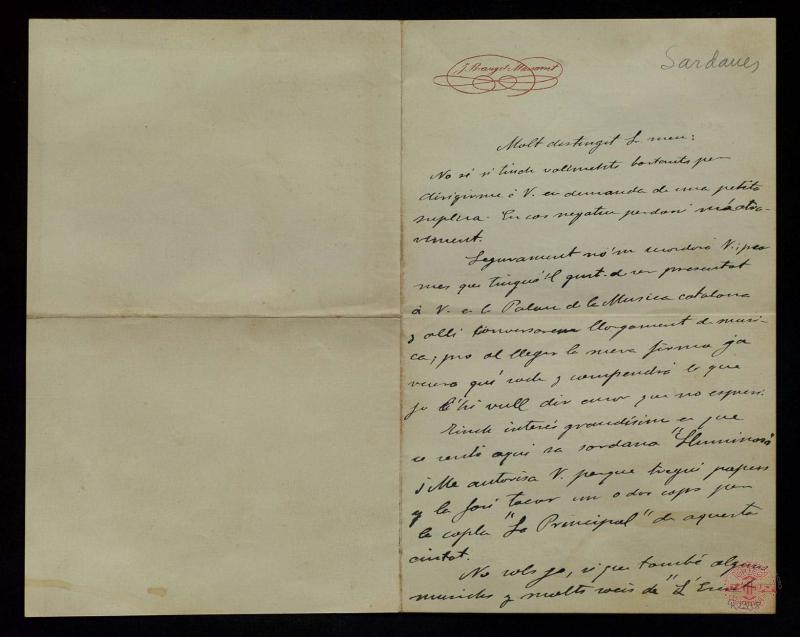 Sardanes
Molt distingit Sr meu:
No sé si tinch valiments bastants per
dirigirme á V. en demanda de una petita
suplica. En cas negatiu perdoni
vement.
Segurament no'm recordará V.; pro
mes que tingué'l gust d ser presentat
á V. en lo Palau de la Musica catalana
y allí conversarem llargament de musi-
ca; pro al llegir la meva firma ja
veura qué y compendrá lo que
jo li vull dir encar que no
Tinch interés grandíssim en que
se senti aquí sa sardana "Lluminosa"
¿Me autorisa V. perque tregui papers
y la fassi tocar un o dos cops per
la copla "La Principal" de aquesta
ciutat.
No sols jo, si que també alguns
musichs y molts socis de "L'